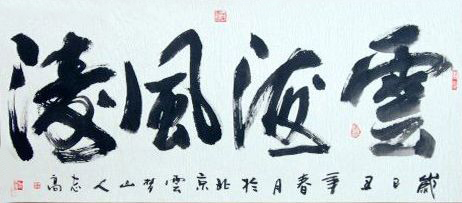 雲海風
歲己丑年春月於北京雲夢山人志高